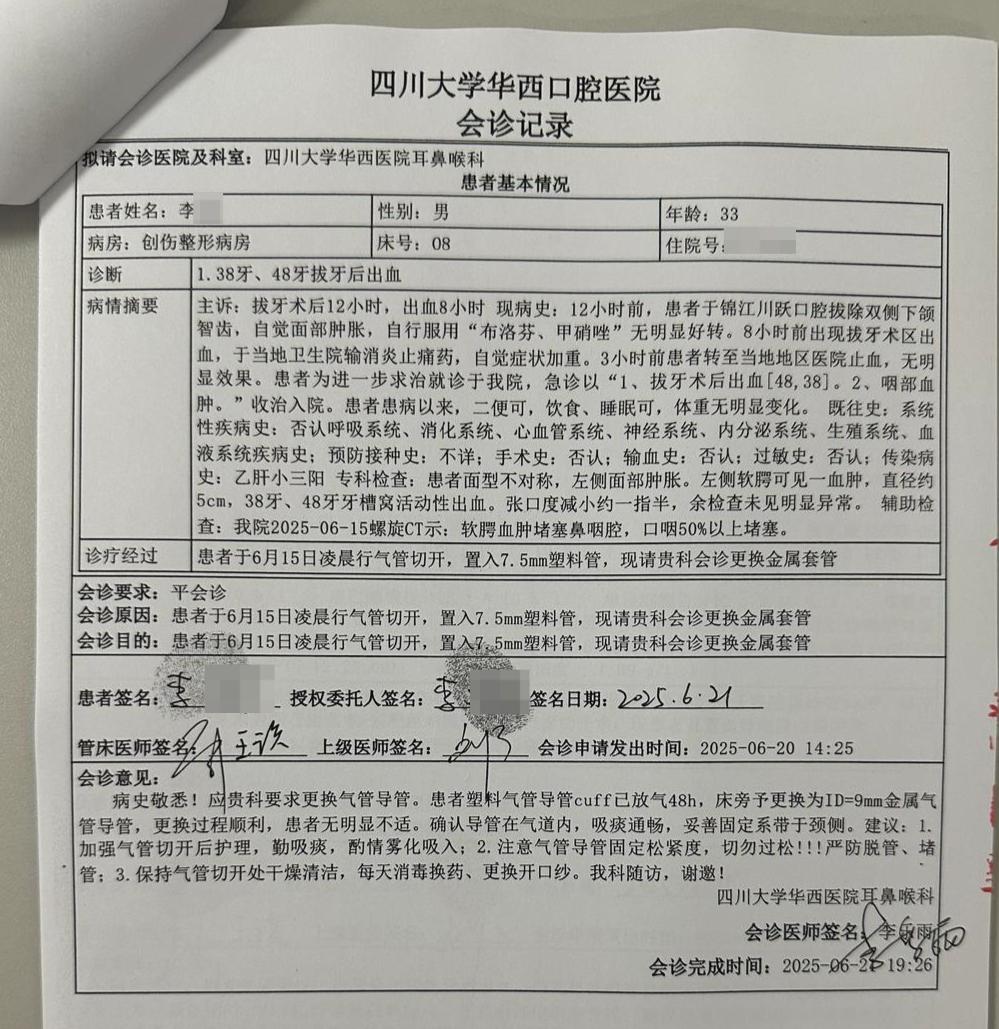 四川大学华西口腔医院
会诊记录
拟请会诊医院及科室：四川大学华西医院耳鼻喉科
患者基本情况
患者姓名：李 性别：男 年龄：33
病房：创伤整形病房 床号：08 住院号：
诊断 1.38牙、48牙拔牙后出血
病情摘要 主诉：拔牙术后12小时，出血8小时 现病史：12小时前，患者于锦江川跃口腔拔除双侧下颌
智齿，自觉面部肿胀，自行服用“布洛芬、甲硝唑”无明显好转。8小时前出现拔牙术区出
血，于当地卫生院输消炎止痛药，自觉症状加重。3小时前患者转至当地地区医院止血，无明
显效果。患者为进一步求治就诊于我院，急诊以“1、拔牙术后出血[48,38]。2、咽部血
肿。”收治入院。患者患病以来，二便可，饮食、睡眠可，体重无明显变化。 既往史：系统
性疾病史：否认呼吸系统、消化系统、心血管系统、神经系统、内分泌系统、生殖系统、血
液系统疾病史；预防接种史：不详；手术史：否认；输血史：否认；过敏史：否认；传染病
史：乙肝小三阳 专科检查：患者面型不对称，左侧面部肿胀。左侧软腭可见一血肿，直径约
5cm，38牙、48牙牙槽窝活动性出血。张口度减小约一指半，余检查未见明显异常。 辅助检
查：我院2025-06-15螺旋CT示：软腭血肿堵塞鼻咽腔，口咽50%以上堵塞。
诊疗经过 患者于6月15日凌晨行气管切开，置入7.5mm塑料管，现请贵科会诊更换金属套管
会诊要求：平会诊
会诊原因：患者于6月15日凌晨行气管切开，置入7.5mm塑料管，现请贵科会诊更换金属套管
会诊目的：患者于6月15日凌晨行气管切开，置入7.5mm塑料管，现请贵科会诊更换金属套管
患者签名：李 授权委托人签名：李 签名日期：2025.6.21
管床医师签名： 上级医师签名： 会诊申请发出时间：2025-06-20 14:25
会诊意见：
病史敬悉！应贵科要求更换气管导管。患者塑料气管导管cuff已放气48h，床旁予更换为ID=9mm金属气
管导管，更换过程顺利，患者无明显不适。确认导管在气道内，吸痰通畅，妥善固定系带于颈侧。建议：1.
加强气管切开后护理，勤吸痰，酌情雾化吸入；2.注意气管导管固定松紧度，切勿过松!!!严防脱管、堵
管；3.保持气管切开处干燥清洁，每天消毒换药、更换开口纱。我科随访，谢邀！
四川大学华西医院耳鼻喉科
会诊医师签名：李乐雨
会诊完成时间：2025-06-21 19:26